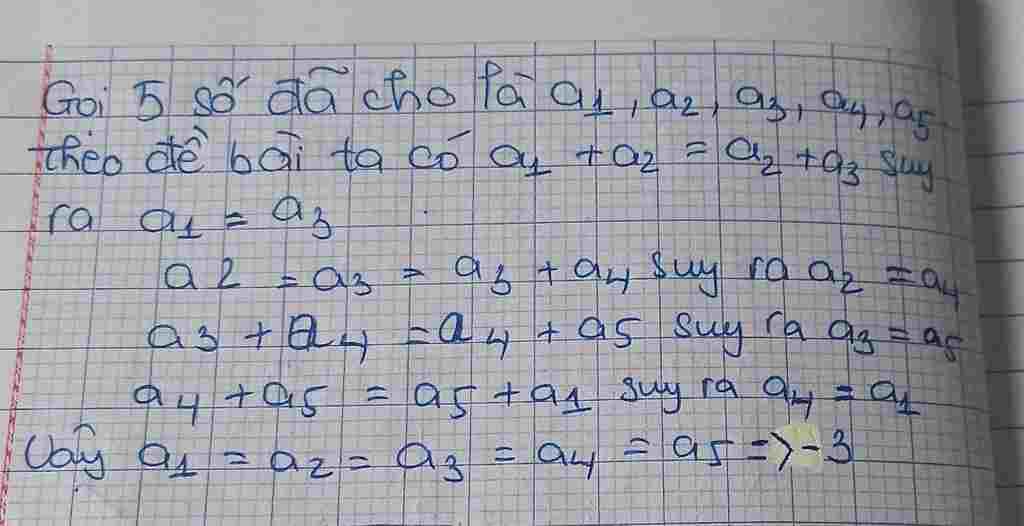 Gọi 5 số đã cho là a1, a2, a3, a4, a5
theo đề bài ta có a1 + a2 = a2 + a3 suy
ra a1 = a3
a2 = a3 = a3 + a4 suy ra a2 = a4
a3 + a4 = a4 + a5 suy ra a3 = a5
a4 + a5 = a5 + a1 suy ra a4 = a1
Vậy a1 = a2 = a3 = a4 = a5 => -3